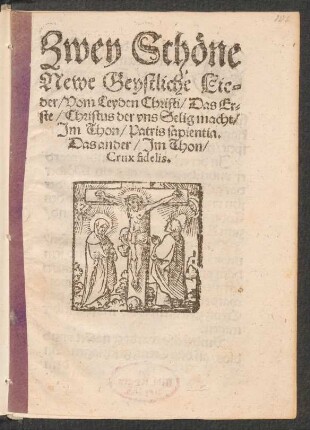 Zwey Schöne
Newe Geystliche Lie-
der/ Vom Leyden Christi/ Das Er-
ste/ Christus der vns Selig macht/
Im Thon/ Patris sapientia.
Das ander/ Im Thon/
Crux fidelis.